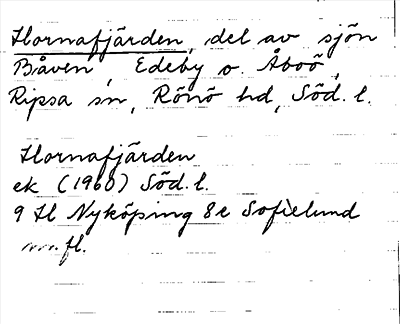 Hornafjärden, del av sjön
Båven, Edeby o. Åboö,
Ripsa sn, Rönö hd, Söd. l.
Hornafjärden
ek (1960) Söd. l.
9 H Nyköping 8e Sofielund
m.fl.